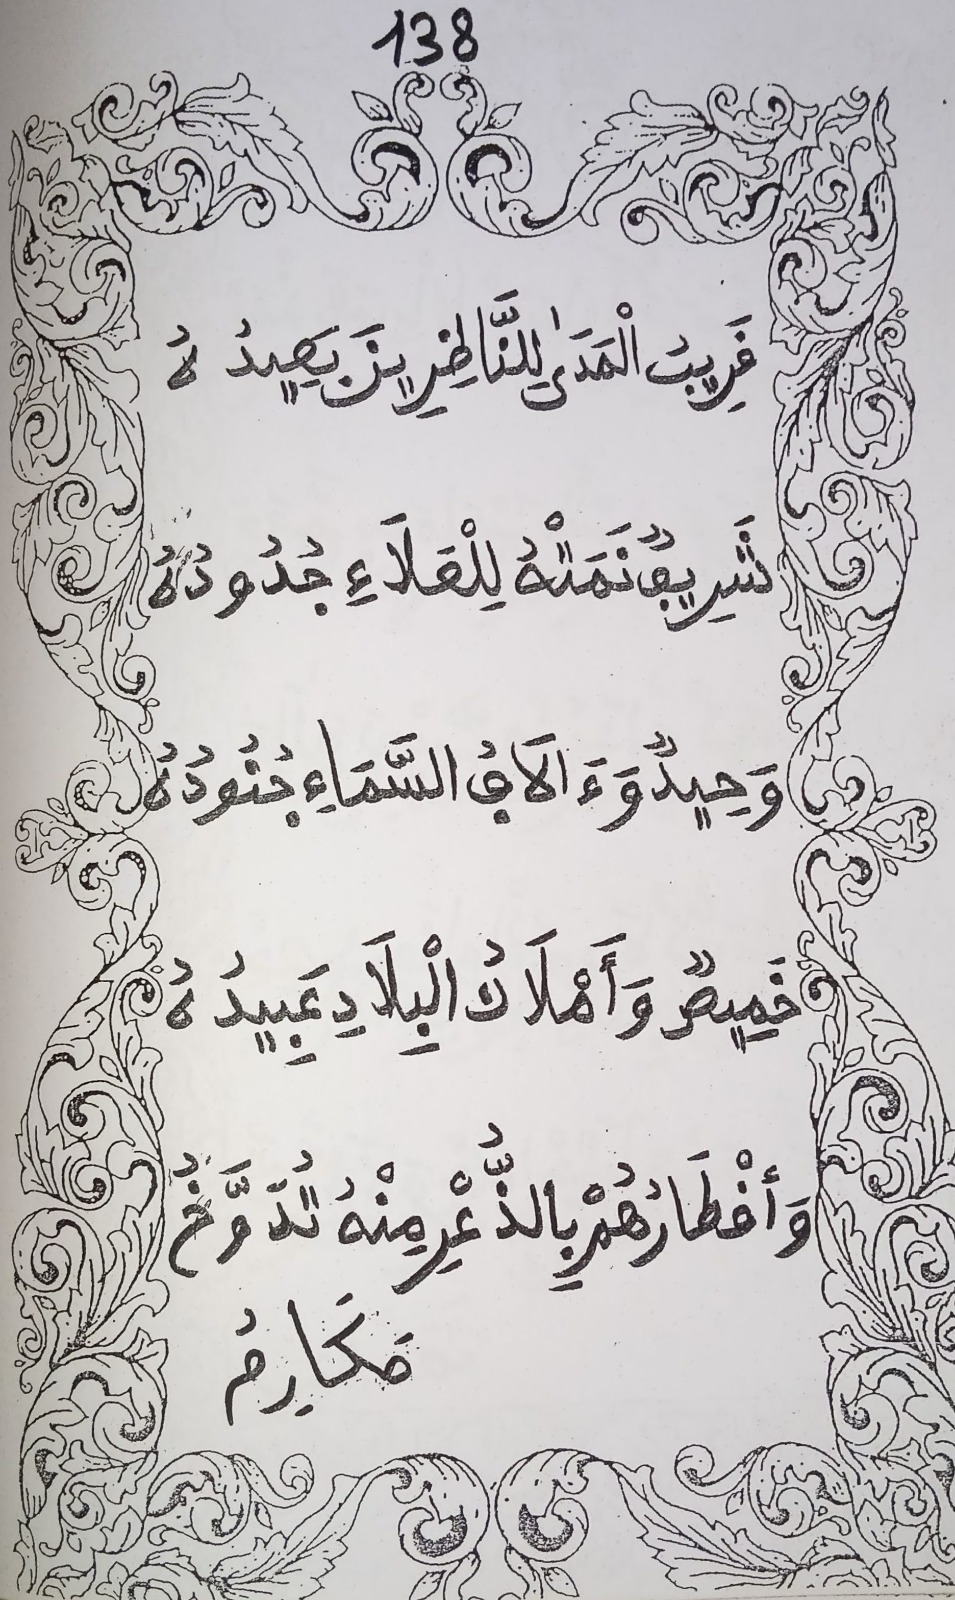 138
قَرِيبُ الْمَدَىٰ لِلنَّاظِرِينَ بَعِيدُهُ
شَرِيفٌ نَمَتْهُ لِلْعَلَاءِ جُدُودُهُ
وَحِيدٌ وَءَالَافُ السَّمَاءِ جُنُودُهُ
خَمِيصٌ وَأَمْلَاكُ الْبِلَادِ عَبِيدُهُ
وَأَقْطَارُهُمْ بِالذُّعْرِ مِنْهُ تُدَوَّخُ
مَكَارِمُ